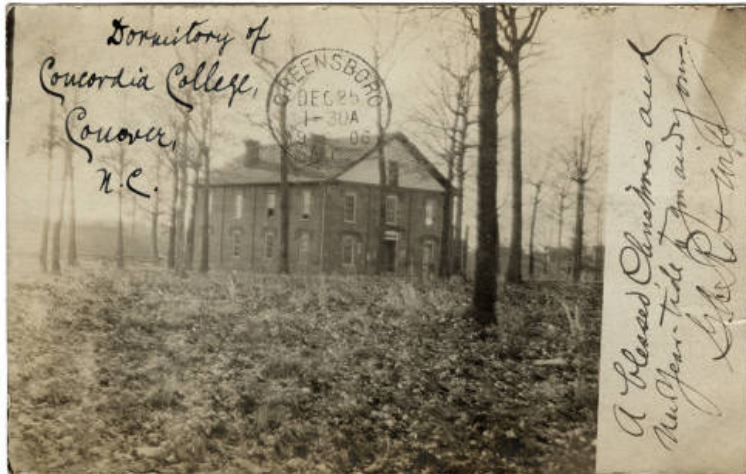 Dormitory of
Concordia College,
Conover,
N.C.
GREENSBORO
DEC 25
1-30A
06
A blessed Christmas and
New Year-tide to you and yours.